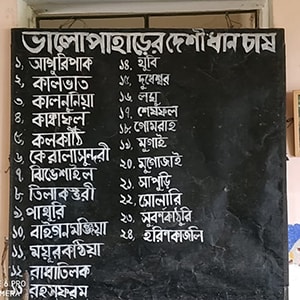 ভালোপাহাড়ের দেশী ধান চাষ
১, আগুরিপাক
২, কালভাত
৩, কালনুনিয়া
৪, কান্বাফুল
৫, কলকাঠি
৬, কেরালাসুন্দরী
৭, ঝিঙেশাইল
৮, তিলাকস্তুরী
৯, পাঙ্গুরি
১০, বাইগন মঞ্জিয়া
১১, ময়ূরকন্ঠিয়া
১২, রাধাতিলক
১৩, বহসফরম
১৪, থুবি
১৫, দুধেশ্বর
১৬, লঘু
১৭, শেষফল
১৮ গোমরাহ
১৯, মুগাই
২০, মুগোজাই
২১, আপুড়ি
২২, সোলারি
২৩, সুবর্ণকাঠুরি
২৪, হরিণকাজলি